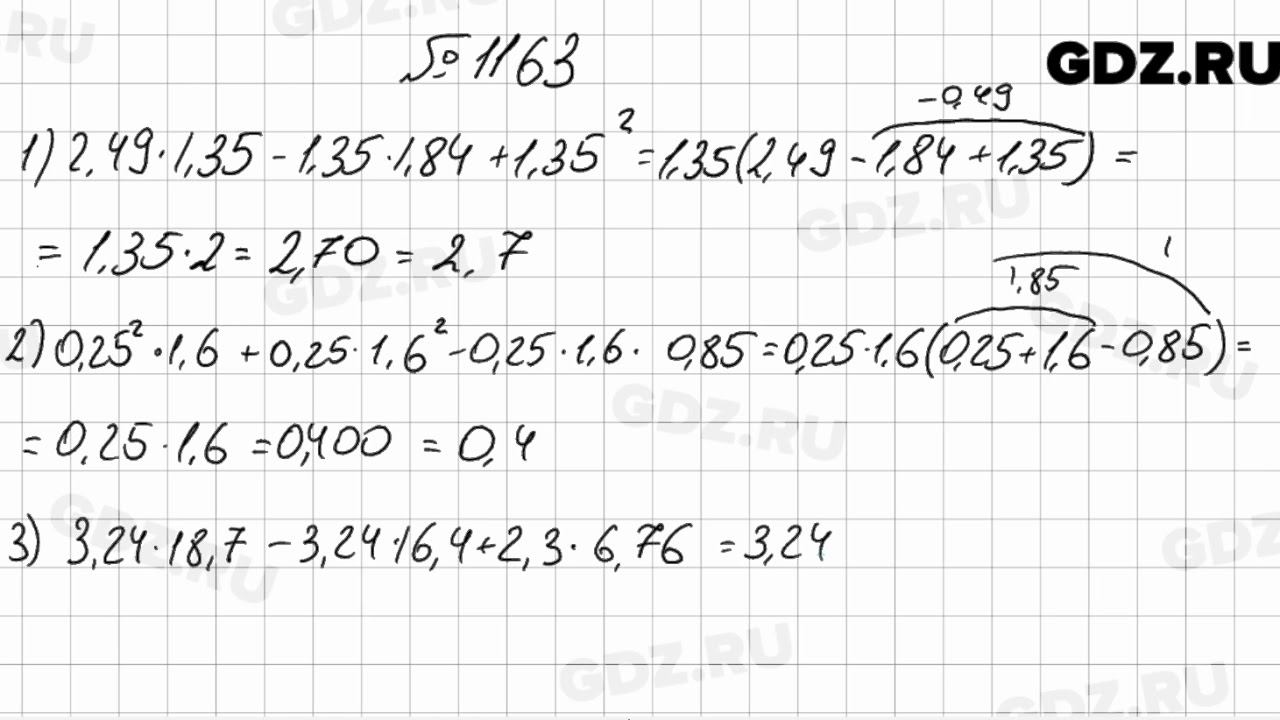 № 1163
GDZ.RU
-0,49
1) 2,49·1,35 - 1,35·1,84 + 1,35² = 1,35(2,49 - 1,84 + 1,35) =
= 1,35·2 = 2,70 = 2,7
1
1,85
2) 0,25²·1,6 + 0,25·1,6² - 0,25·1,6·0,85 = 0,25·1,6(0,25 + 1,6 - 0,85) =
= 0,25·1,6 = 0,400 = 0,4
3) 3,24·18,7 - 3,24·16,4 + 2,3·6,76 = 3,24